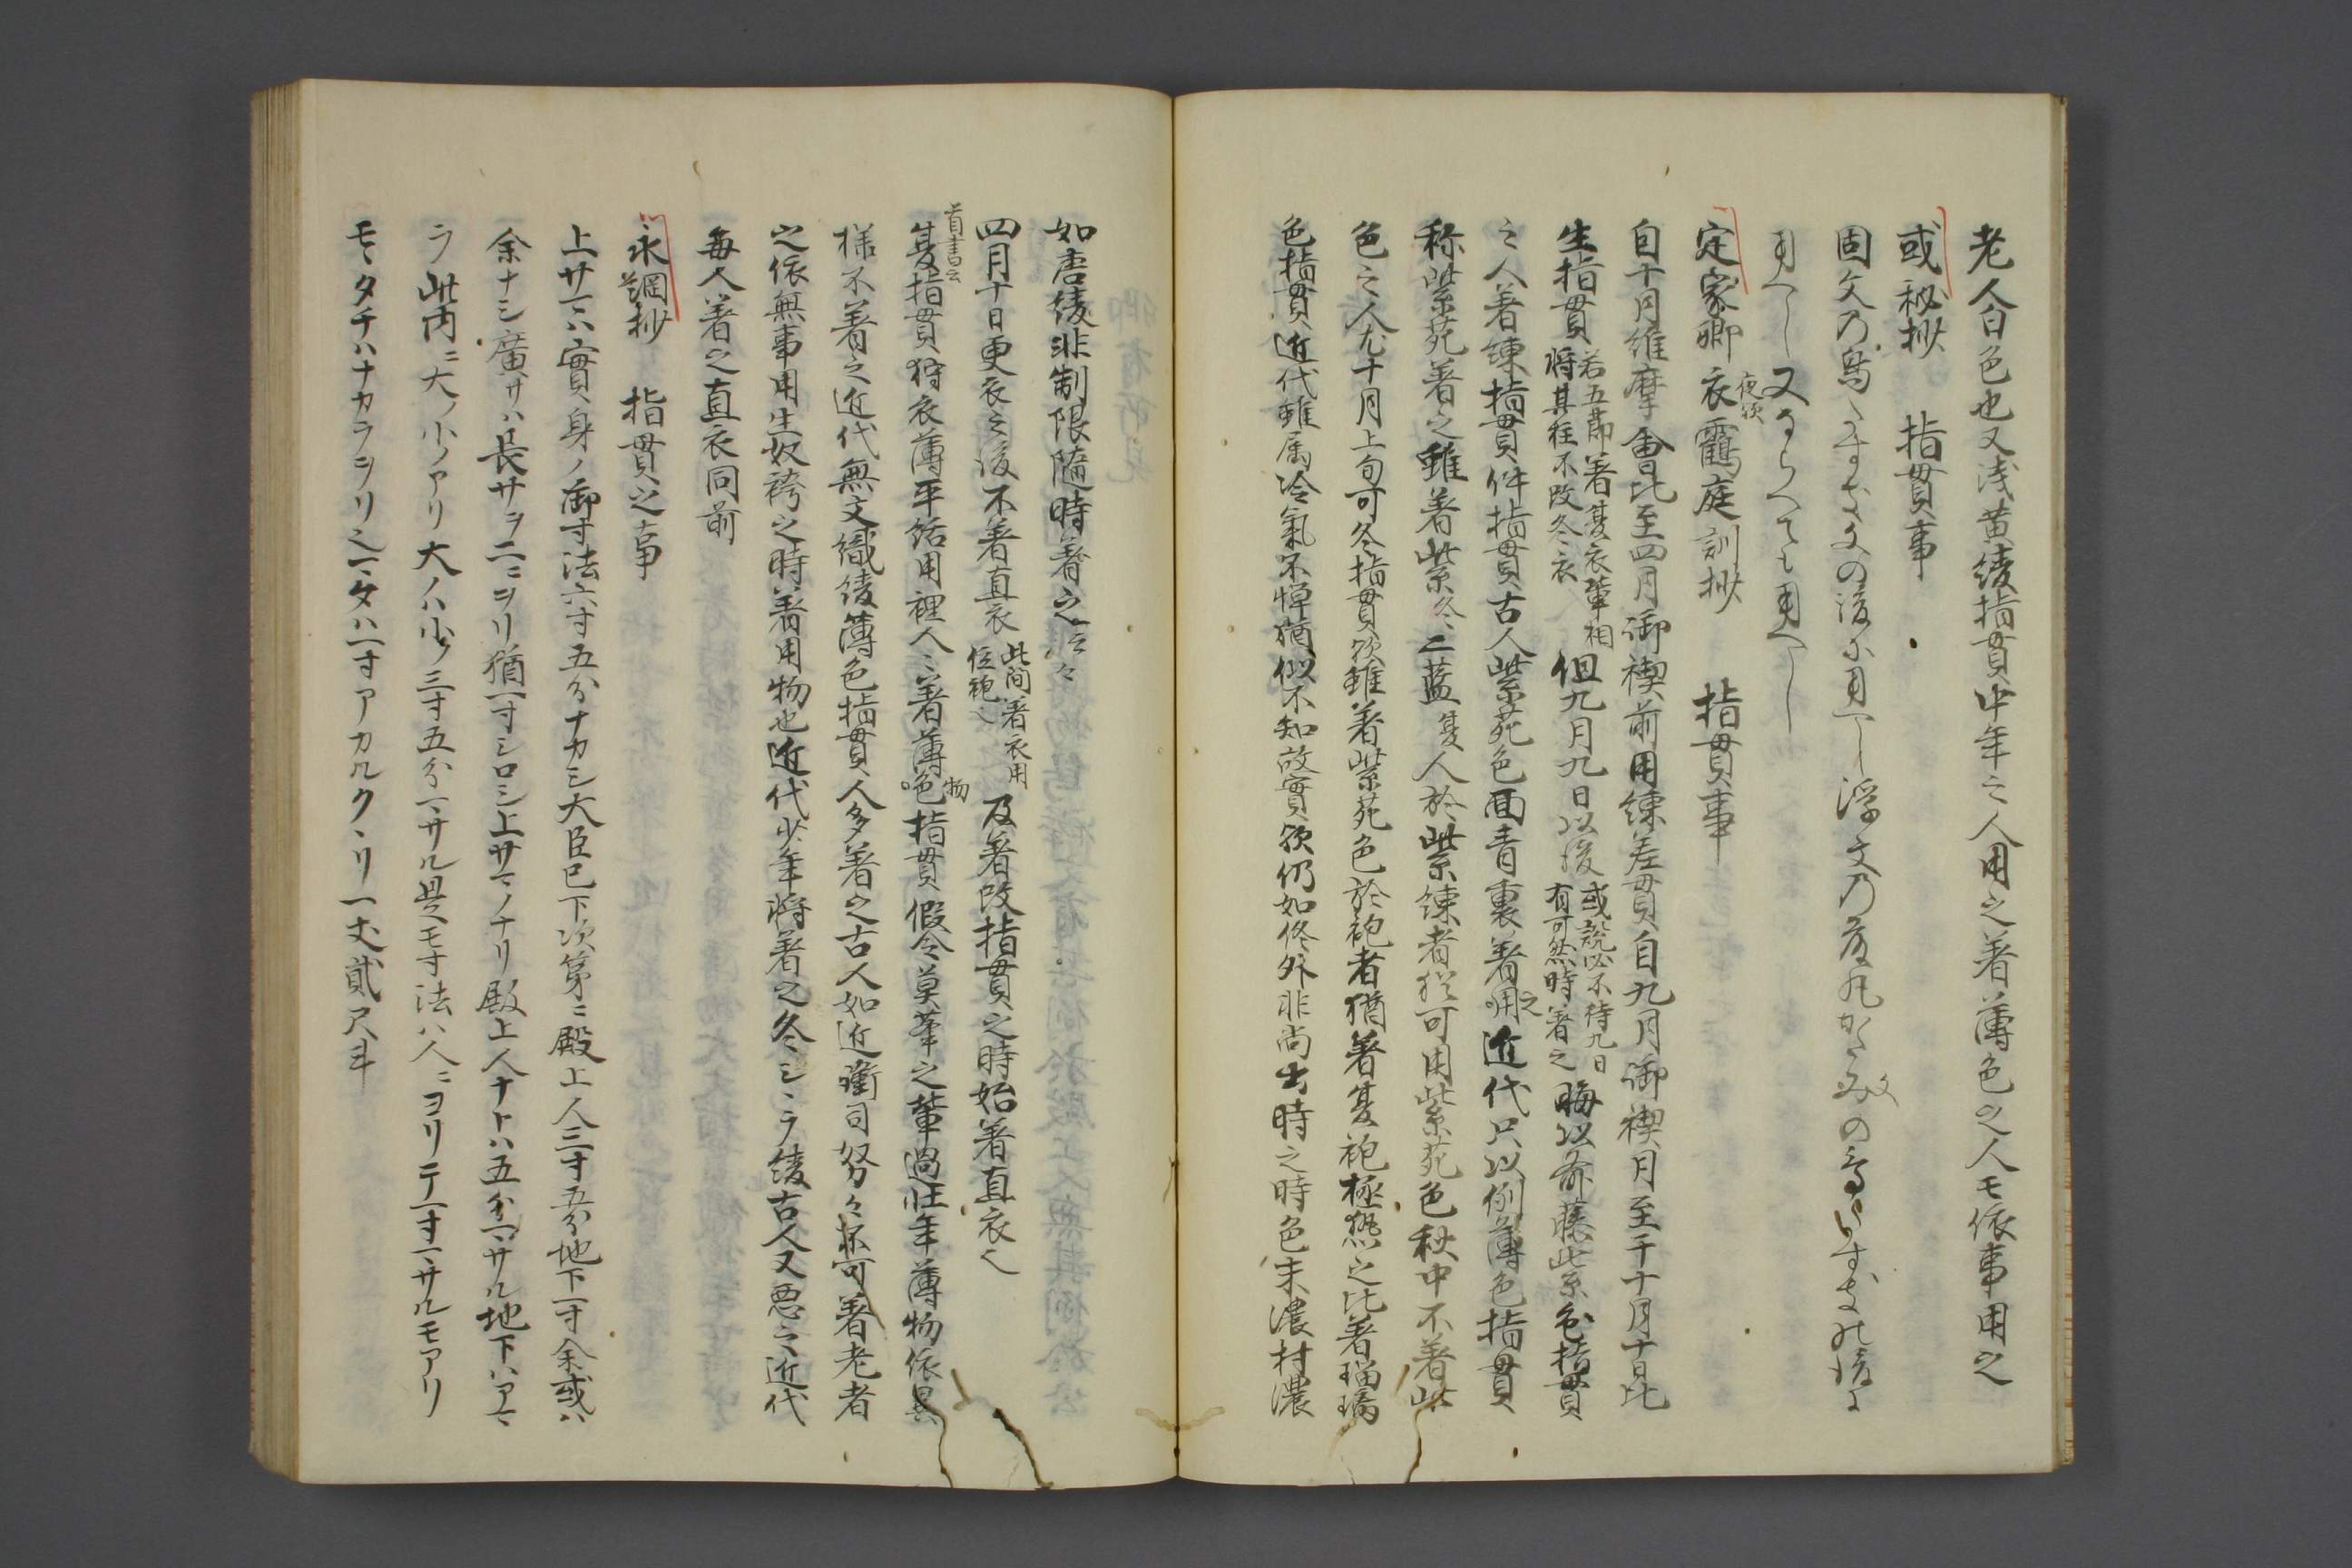 老人白色也又浅黄綾指貫中年之人用之著薄色之人モ依事用之
或秘抄　指貫事
固文乃鳥たすき文の後に用へし浮文乃
用へし又ならへても用へし
定家卿衣鶴庭訓抄　指貫事
夜歟
自十月維摩會比至四月御禊前用練差貫自九月御禊月至于十月十日比
生指貫若五節著夏衣輩相将其程不改冬衣但九月九日以後或説必不待九日有可然時著之晦以前藤紫色指貫
之人著練指貫件指貫古人紫苑色面青裏著用之近代只以例薄色指貫
称紫苑著之雖著紫冬二藍夏人於紫練者猶可用紫苑色秋中不著此
色之人尤十月上旬可冬指貫歟雖著紫苑色於袍者猶著夏袍極熱之比著瑠璃
色指貫近代雖属冷氣不憚猶似不知故實歟仍如修外非尚出時之時色末濃村濃
如唐綾非制限隨時著之云々
四月十日更衣之後不著直衣此间著衣用位袍之及著改指貫之時始著直衣之
首書云
夏指貫狩衣薄平絬用裡人々著薄色物指貫假令莫輩之輩過壮年薄物依異
様不著之近代無文織綾薄色指貫人多著之古人如近衛司努々不可著老者
之依無事用生奴袴之時著用物也近代少年将著之冬シヽラ綾古人又悪之近代
毎人著之直衣同前
永綱抄　指貫之事
上サマハ實身ノ御寸法六寸五分ナカシ大臣已下次第ニ殿上人三寸五分地下一寸余或ハ
余ナシ廣サハ長サヲ二ニヲリ猶一寸シロシ上サマノナリ殿上人ナトハ五分マサル地下ハアマ
ラ此内ニ大ノ小ノアリ大ノハ少ノ三寸五分マサル是モ寸法ハ人ニヨリテ一寸マサルモアリ
モヽタチハナカラヲリ之マタハ一寸アカルクヽリ一丈貳尺斗